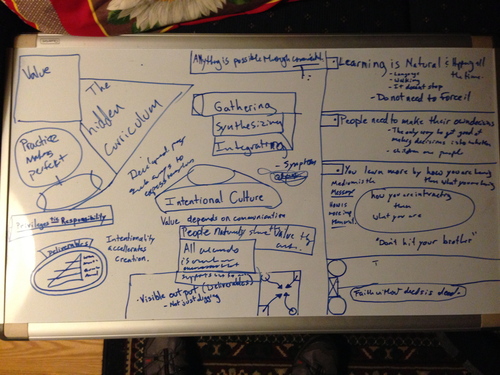 Value
The
hidden
Curriculum
Practice
Makes
perfect
Privileges Responsibility
Deliverables
Intentionality
accelerates
creation.
Anything is possible through
Gathering
Synthesizing
Integrating
- Symptom
Developed
to
Intentional Culture
Value depends on communication
People naturally share Value
All
is
- Visible output (Deliverables)
- Not just digging
Learning is Natural & Happening all
the time.
- Language
- Walking
- It doesn't stop
- Do not need to Force it
People need to make their own decisions
- The only way to get good at
making decisions is to
- Children are people
You learn more by how you are being
than what you
Medium is the
Message
how you are interacting
than
what you are
"Don't hit your brother"
Faith without deeds is dead.